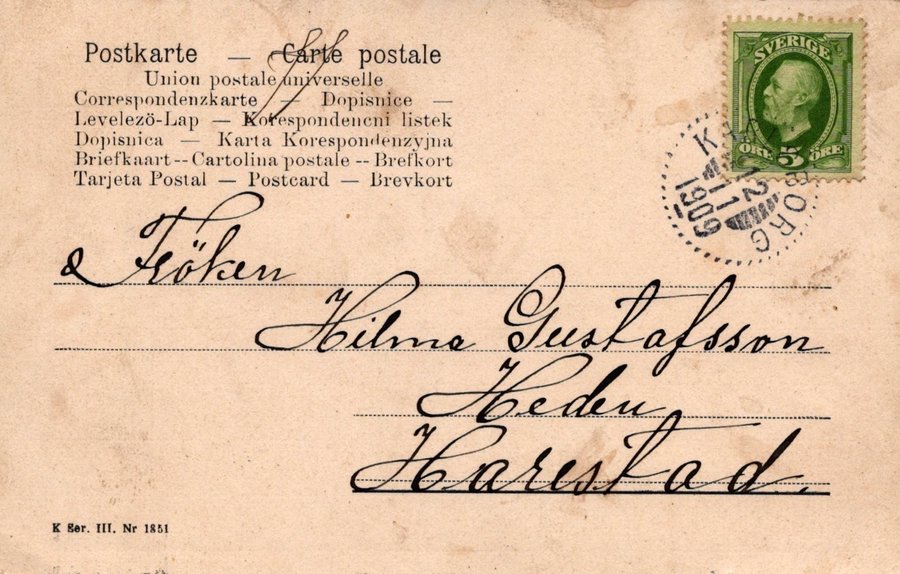 Postkarte — Carte postale
Union postale universelle
Correspondenzkarte — Dopisnice —
Levelezö-Lap — Korespondencni listek
Dopisnica — Karta Korespondenzyjna
Briefkaart -- Cartolina postale -- Brefkort
Tarjeta Postal — Postcard — Brevkort
SVERIGE
ÖRE 5 ÖRE
12
11
1909
Fröken
Hilma Gustafsson
Heden
Harestad.
K Ser. III. Nr 1851